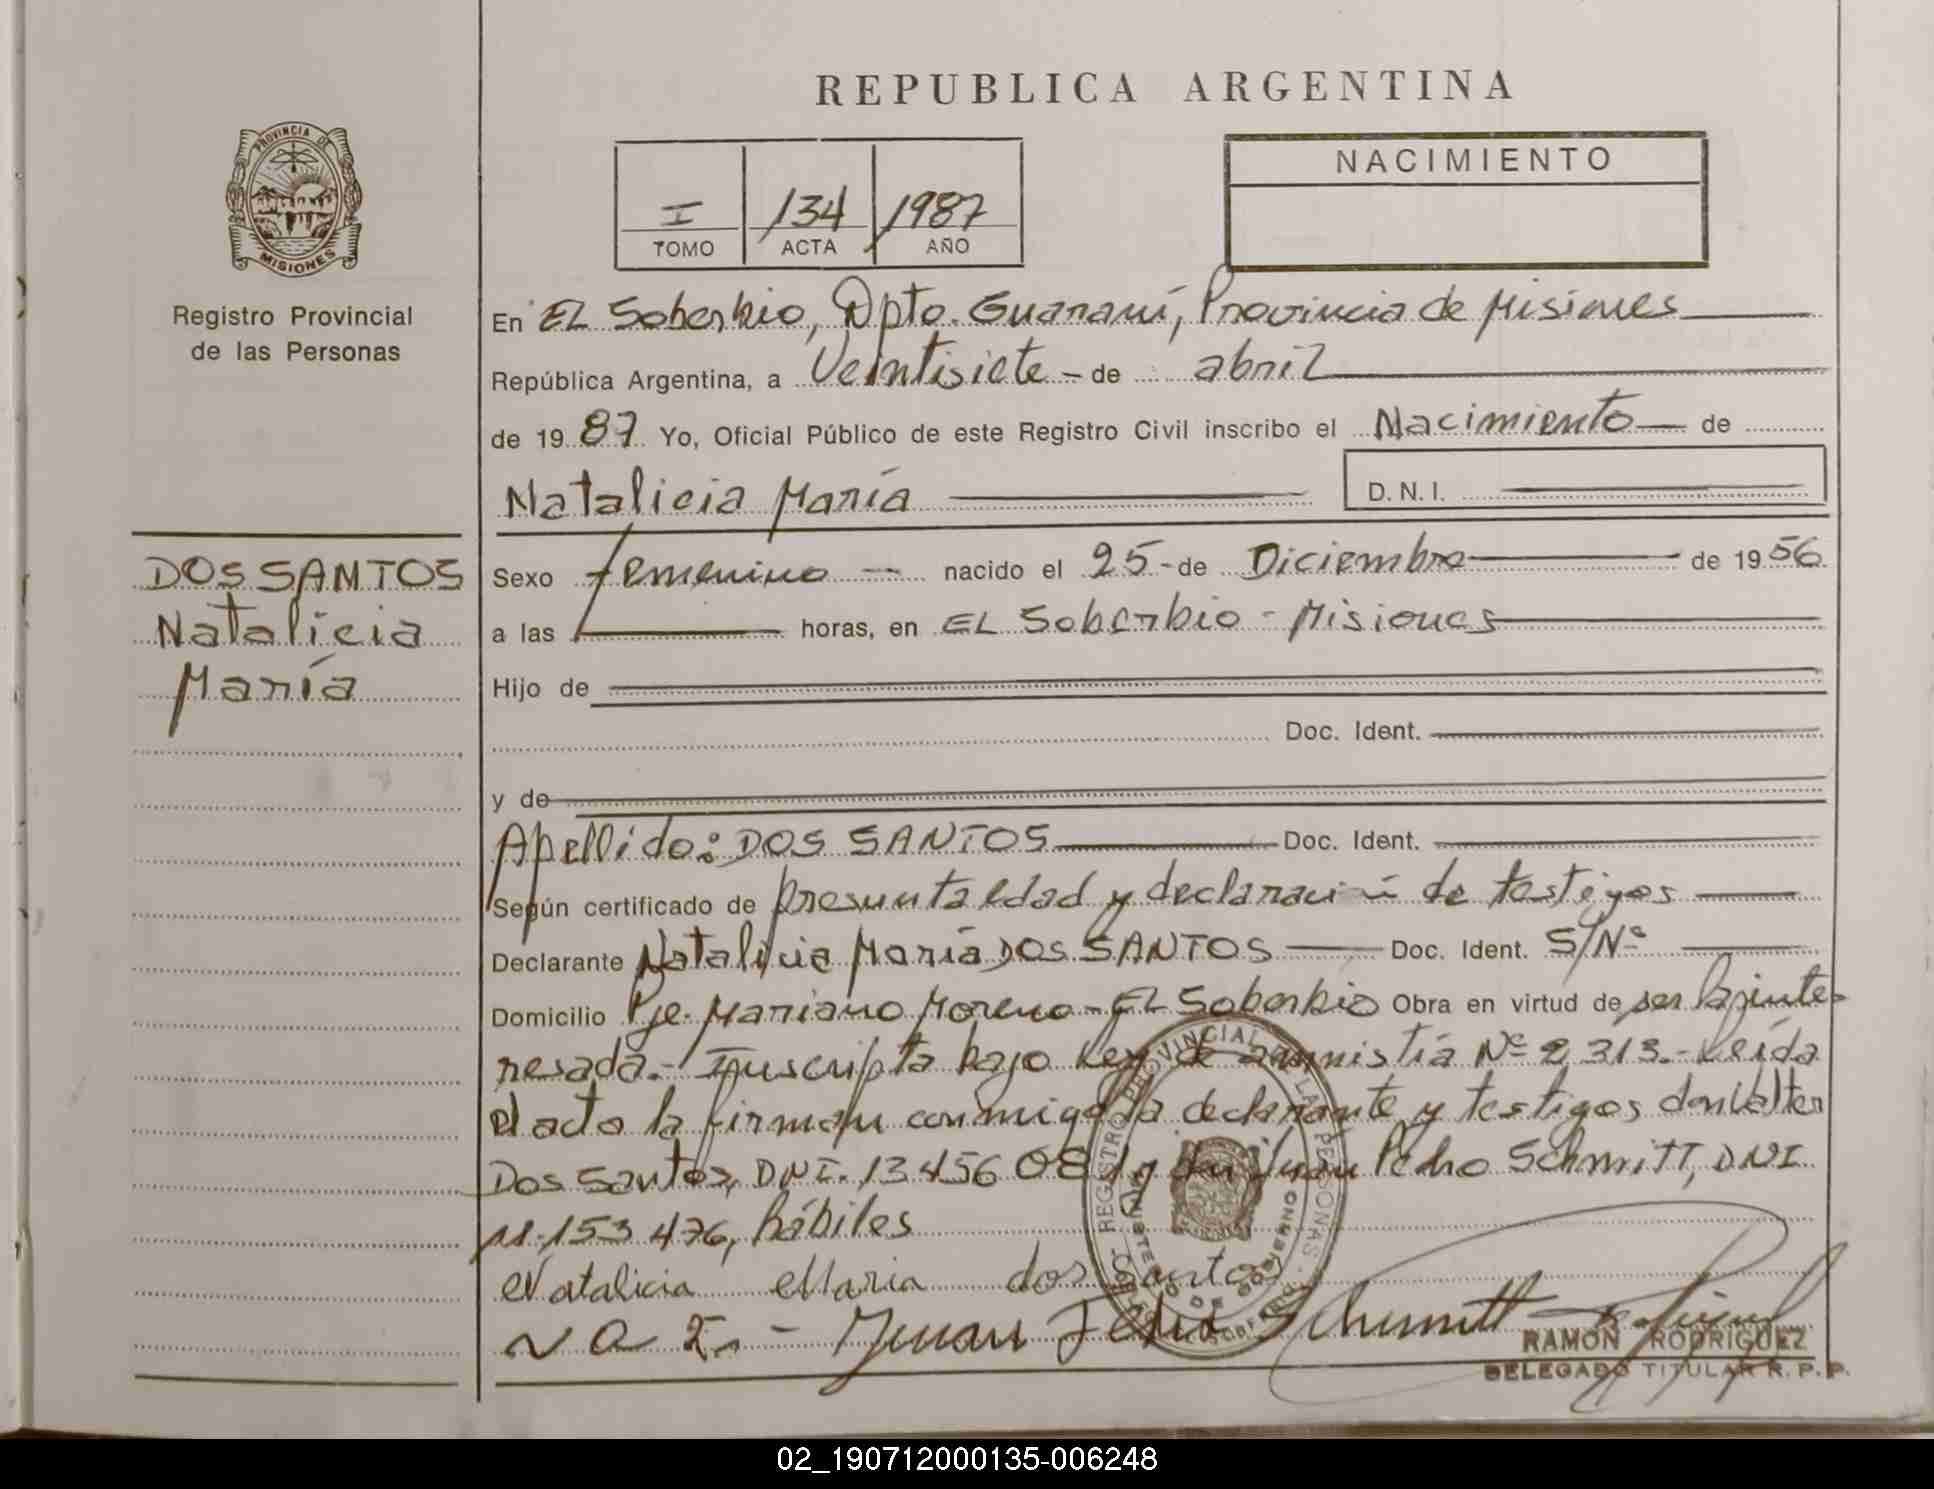 REPUBLICA ARGENTINA
PROVINCIA DE
MISIONES
Registro Provincial
de las Personas
I 134 1987
TOMO ACTA AÑO
NACIMIENTO
En EL Soberbio, Dpto. Guaraní, Provincia de Misiones
República Argentina, a Veintisiete - de abril
de 19 87 Yo, Oficial Público de este Registro Civil inscribo el Nacimiento de
Natalicia María D.N.I.
DOS SANTOS
Natalicia
María
Sexo femenino nacido el 25 - de Diciembre de 19 56
a las horas, en EL Soberbio - Misiones
Hijo de
Doc. Ident.
y de
Apellido: DOS SANTOS Doc. Ident.
Según certificado de presunta edad y declaración de testigos
Declarante Natalicia María DOS SANTOS Doc. Ident. S/Nº
Domicilio Pje. Mariano Moreno - EL Soberbio Obra en virtud de ser la inte-
resada.- Inscripta bajo Ley de amnistía Nº 2313.- Leída
el acta la firman conmigo la declarante y testigos don Valter
Dos Santos, DNI. 13456 08 y Juan Pedro Schmitt, DNI
11.153 476, hábiles
Natalicia Maria dos Santos
Juan Pedro Schmitt
REGISTRO PROVINCIAL DE LAS PERSONAS
MINISTERIO DE GOBIERNO
RAMON RODRIGUEZ
DELEGADO TITULAR R. P. P.
02_190712000135-006248